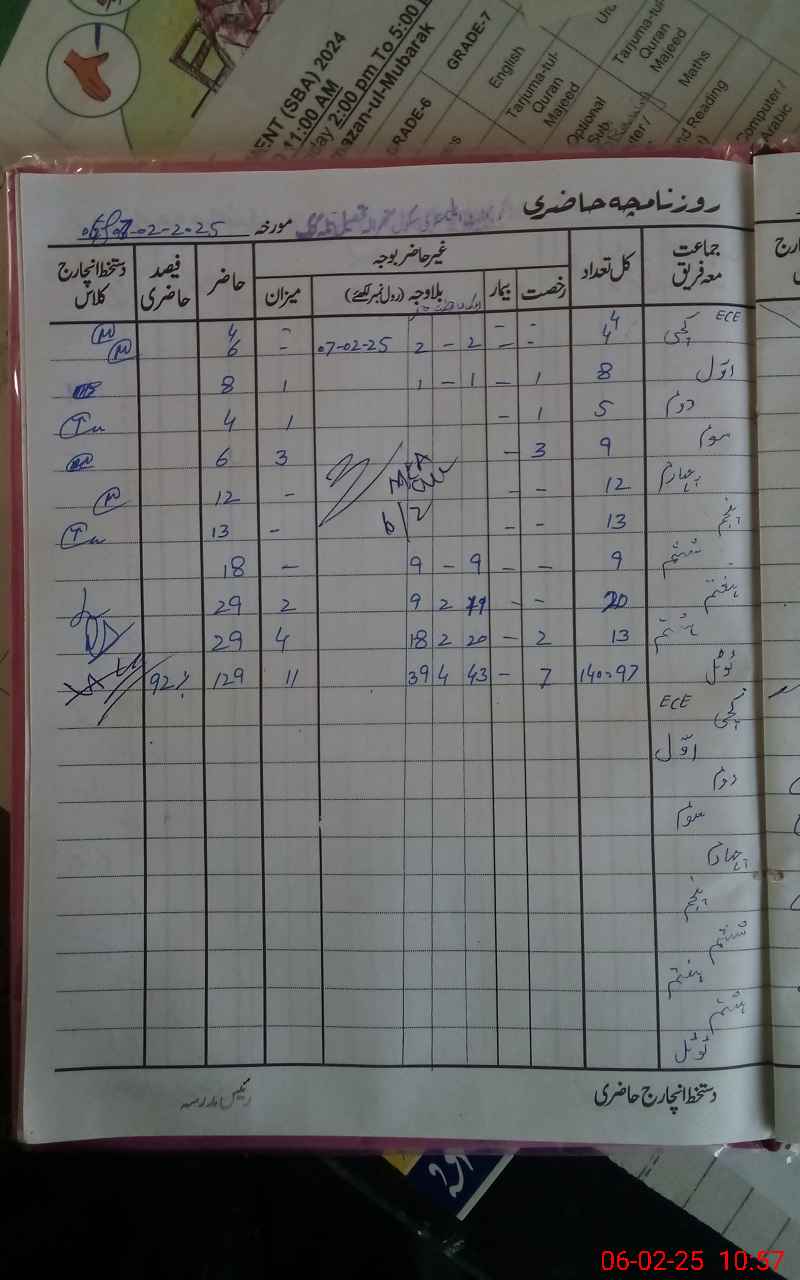 ENT (SBA) 2024
11:00 AM
day 2:00 pm To 5:00
mazan-ul-Mubarak
GRADE-6
GRADE-7
English
Tarjuma-tul-
Quran
Majeed
Optional
Sub.
Tarjuma-tul-
Quran
Majeed
Maths
nd Reading
Computer /
Arabic
روزنامچہ حاضری
مورخہ 07-02-2025
جماعت معہ فریق کل تعداد غیر حاضر بوجہ حاضر فیصد حاضری دستخط انچارج کلاس
رخصت بیمار بلاوجہ (رول نمبر لکھئے) میزان
ECE 4 - - - 4
کچی 4 - - 2 - 2 07-02-25 - 6
اوّل 8 1 - 1 - 1 1 8
دوم 5 1 - 1 4
سوم 9 3 - 3 6
چہارم 12 - - - 12
پنجم 13 - - - 13
6/2
ششم 9 - - 9 - 9 - 18
ہفتم 20 - - 2 9 2 29
ہشتم 13 2 - 20 2 18 4 29
ٹوٹل 140-97 7 - 43 4 39 11 129 92%
ECE کچی
اوّل
دوم
سوم
چہارم
پنجم
ششم
ہفتم
ہشتم
ٹوٹل
دستخط انچارج حاضری رئیس مدرسہ
06-02-25 10:57